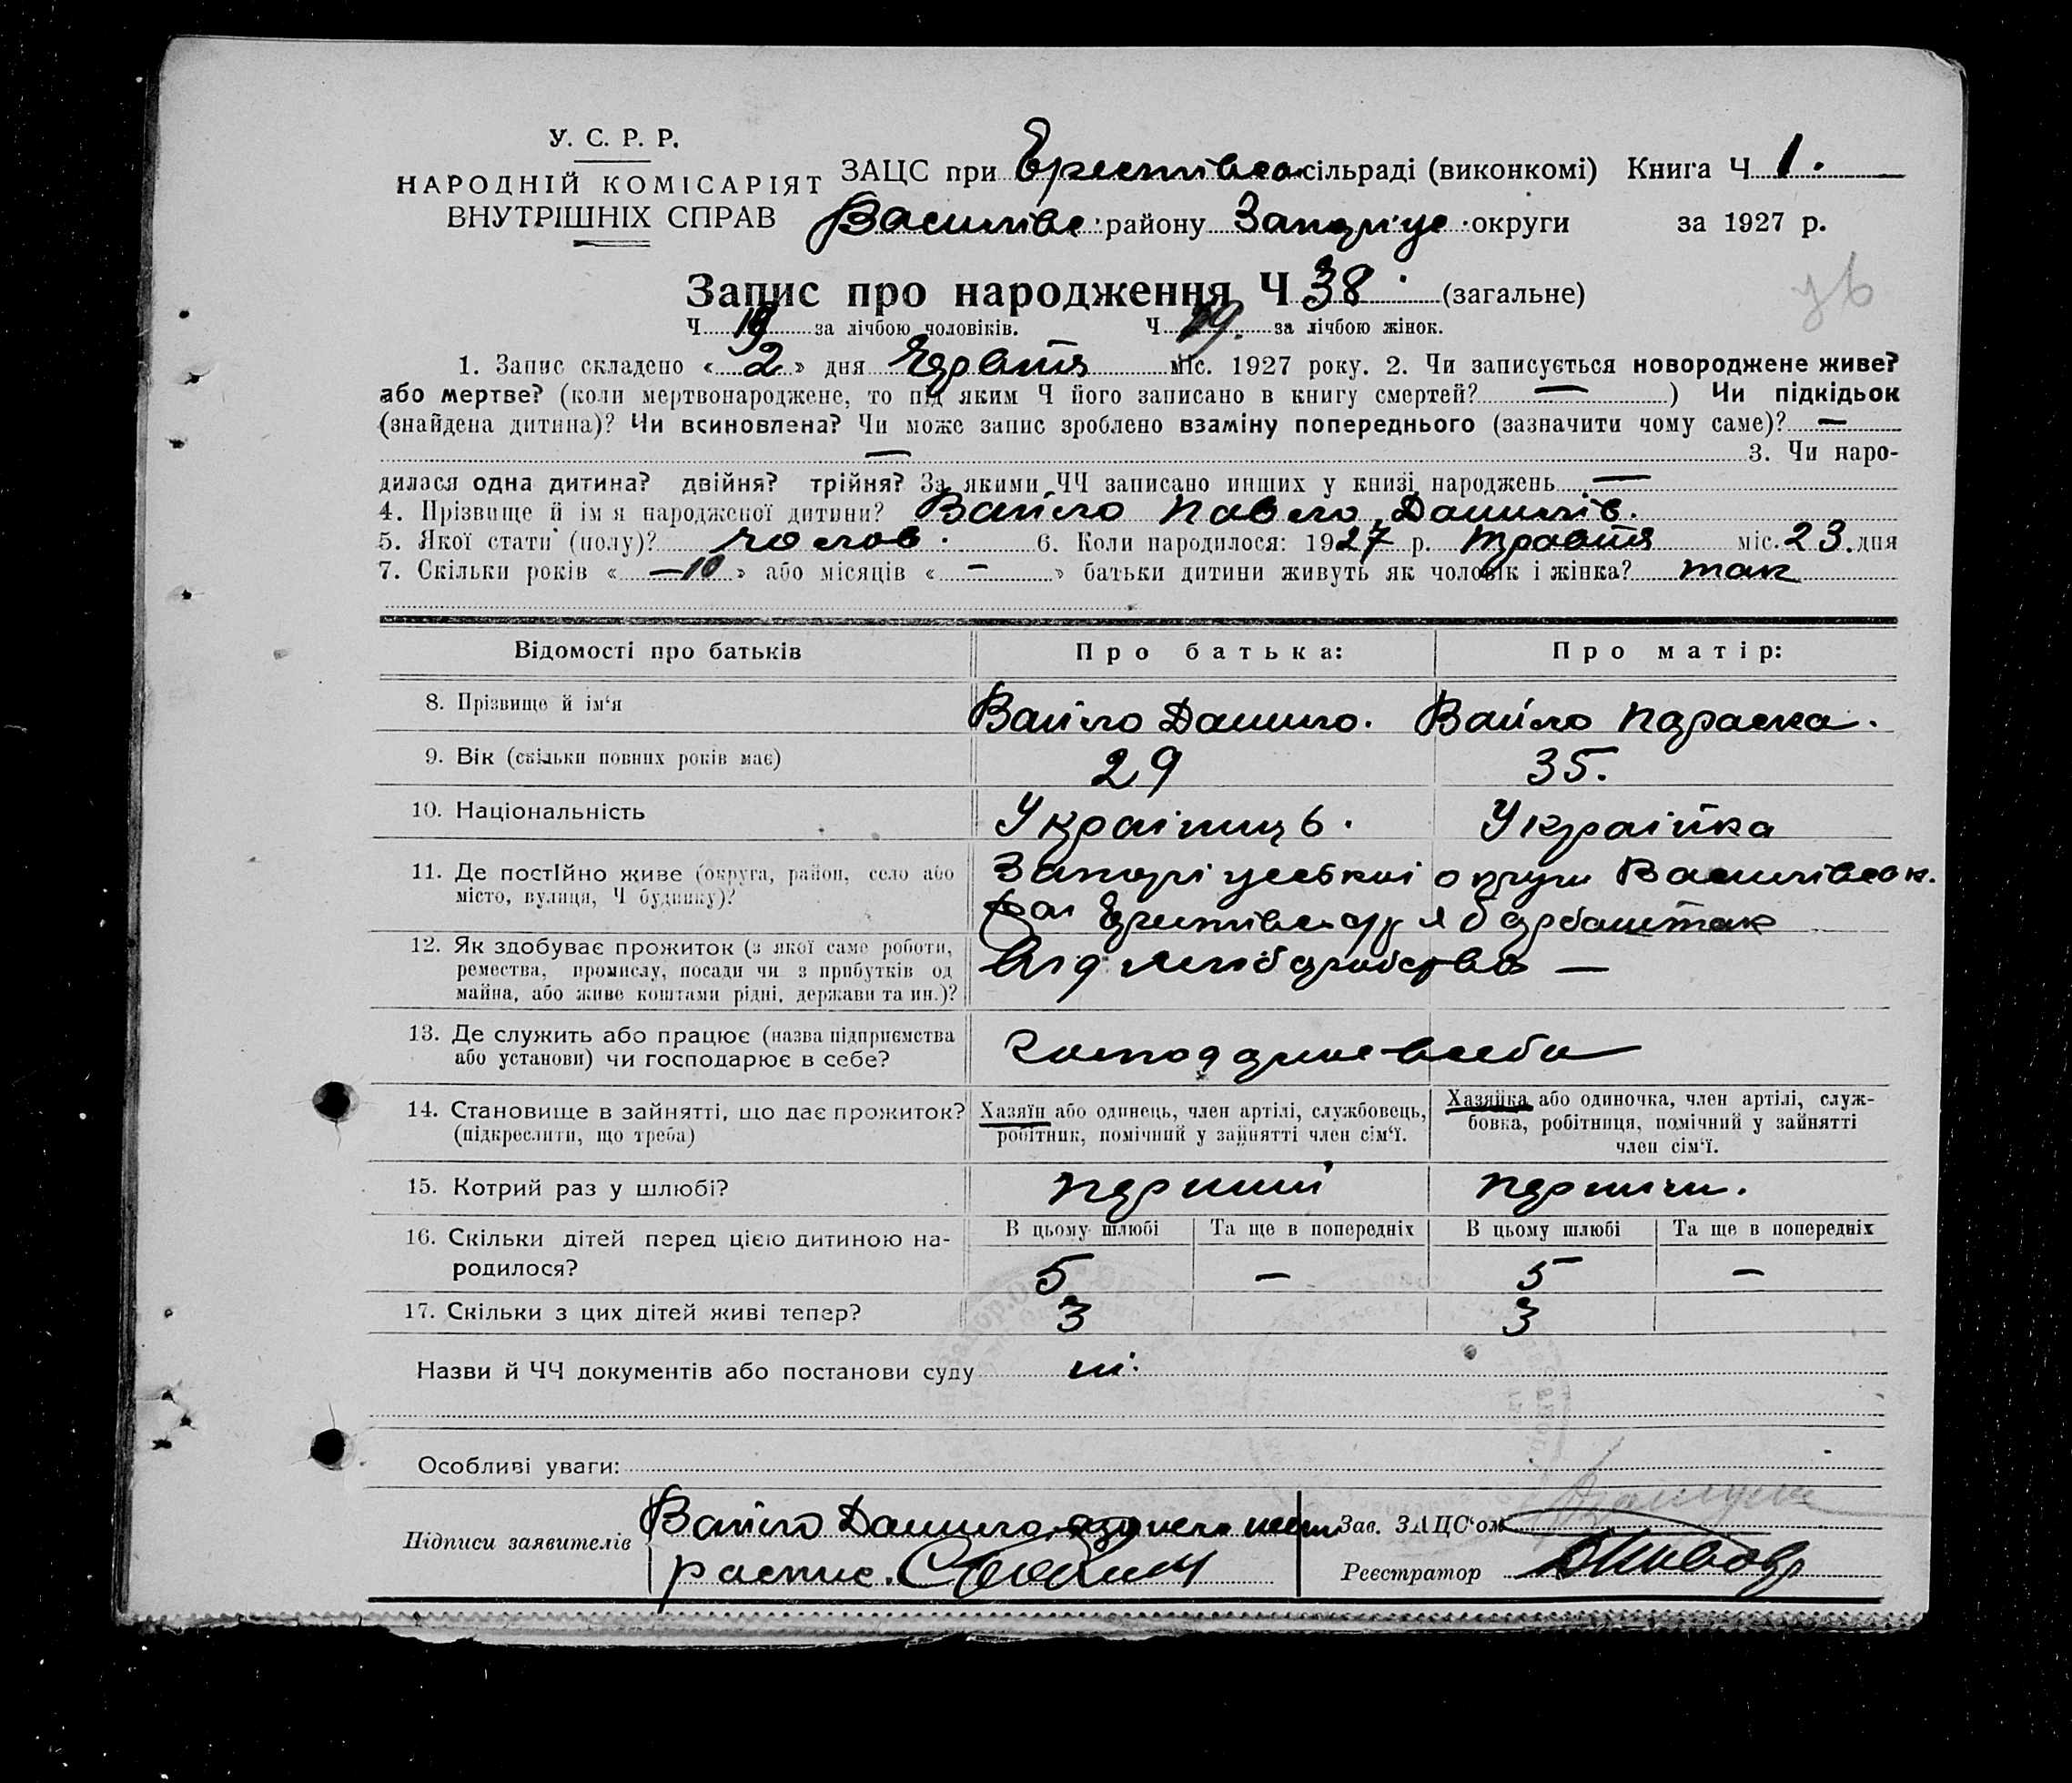 У. С. Р. Р.
НАРОДНІЙ КОМІСАРІЯТ
ВНУТРІШНІХ СПРАВ
ЗАЦС при сільраді (виконкомі) Книга Ч 1.
Василівс. району Запоріце. округи за 1927 р.
Запис про народження Ч 38. (загальне)
Ч 19 за лічбою чоловіків. Ч 19. за лічбою жінок.
1. Запис складено « 2 » дня міс. 1927 року. 2. Чи записується новороджене живе?
або мертве? (коли мертвонароджене, то під яким Ч його записано в книгу смертей? — ) Чи підкідьок
(знайдена дитина)? Чи всиновлена? Чи може запис зроблено взаміну попереднього (зазначити чому саме)? —
— 3. Чи наро-
дилася одна дитина? двійня? трійня? За якими ЧЧ записано инших у книзі народжень —
4. Прізвище й ім'я народженої дитини? Вайло Павло Данилів.
5. Якої статі (полу)? чолов. 6. Коли народилося: 1927 р. травтя міс. 23. дня
7. Скільки років « —10 » або місяців « — » батьки дитини живуть як чоловік і жінка? так
Відомості про батьків Про батька: Про матір:
8. Прізвище й ім'я Вайло Данило. Вайло Параска.
9. Вік (скільки повних років має) 29 35.
10. Національність Українць. Українка
11. Де постійно живе (округа, район, село або
місто, вулиця, Ч будинку)?
округи Василівськ.
12. Як здобуває прожиток (з якої саме роботи,
ремества, промислу, посади чи з прибутків од
майна, або живе коштами рідні, держави та ин.)?
Від хліборобства —
13. Де служить або працює (назва підприємства
або установи) чи господарює в себе?
Господарює в себе
14. Становище в зайнятті, що дає прожиток?
(підкреслити, що треба)
Хазяїн або одинець, член артілі, службовець,
робітник, помічний у зайнятті член сім'ї.
Хазяйка або одиночка, член артілі, служ-
бовка, робітниця, помічний у зайнятті
член сім'ї.
15. Котрий раз у шлюбі? перший перший.
В цьому шлюбі Та ще в попередніх В цьому шлюбі Та ще в попередніх
16. Скільки дітей перед цією дитиною на-
родилося? 5 — 5 —
17. Скільки з цих дітей живі тепер? 3 3
Назви й ЧЧ документів або постанови суду ні.
Особливі уваги:
Підписи заявителів Вайло Данило
распис.
Зав. ЗАЦС'ом
Реєстратор